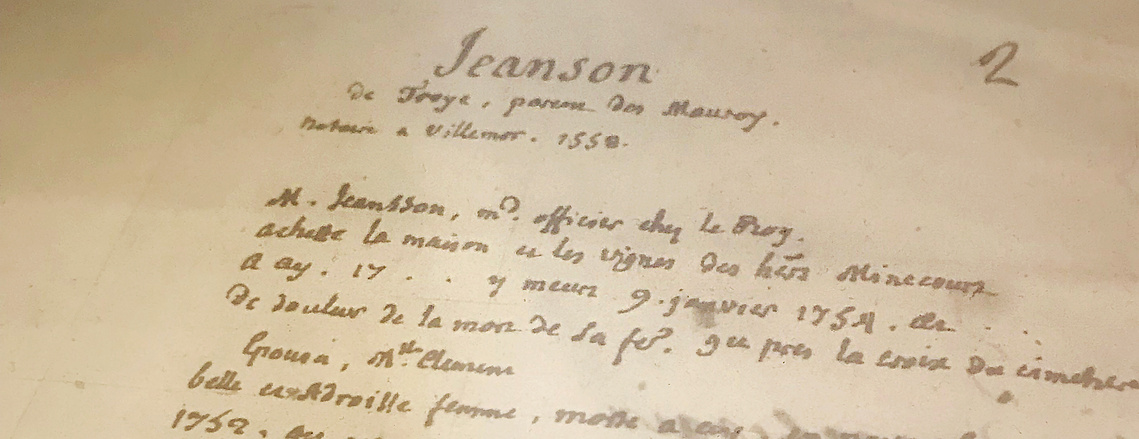 Jeanson
2
de Troye, parent des Mauroy.
Notaire a Villemor. 1550.
M. Jeansson, md. officier chez le Roy.
achette la maison et les vignes des hers Minecourt
a ay. 17 . . y meurt 9. janvier 1754. ae . .
de douleur de la mort de sa fe. gu pres la croix du cimetiere
Epousa, Mlle Clement
belle et adroitte femme, morte a ay,
1752.